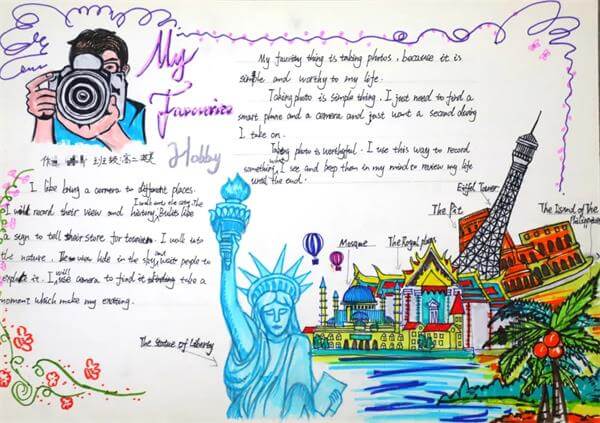 My
Favourite
Hobby
My faurtey thing is taking photos, because it is
simple and worthy to my life.
Taking photo is simple thing. I just need to find a
smart phone and a camera and just want a second during
I take on.
Taking photo is worthyful. I use this way to record
something I see and keep them in my mind to review my life
until the end.
I like bring a camera to different places.
I will record their view and history,
a sign to tell their store for I walk into
the nature. The view hide in the sky, and wait people to
explore it. I will use camera to find it take a
moment which make my exciting.
Eiffel Tower
The Pit
The Island of The
Philippines
Mosque
The Royal place
The Statue of Liberty